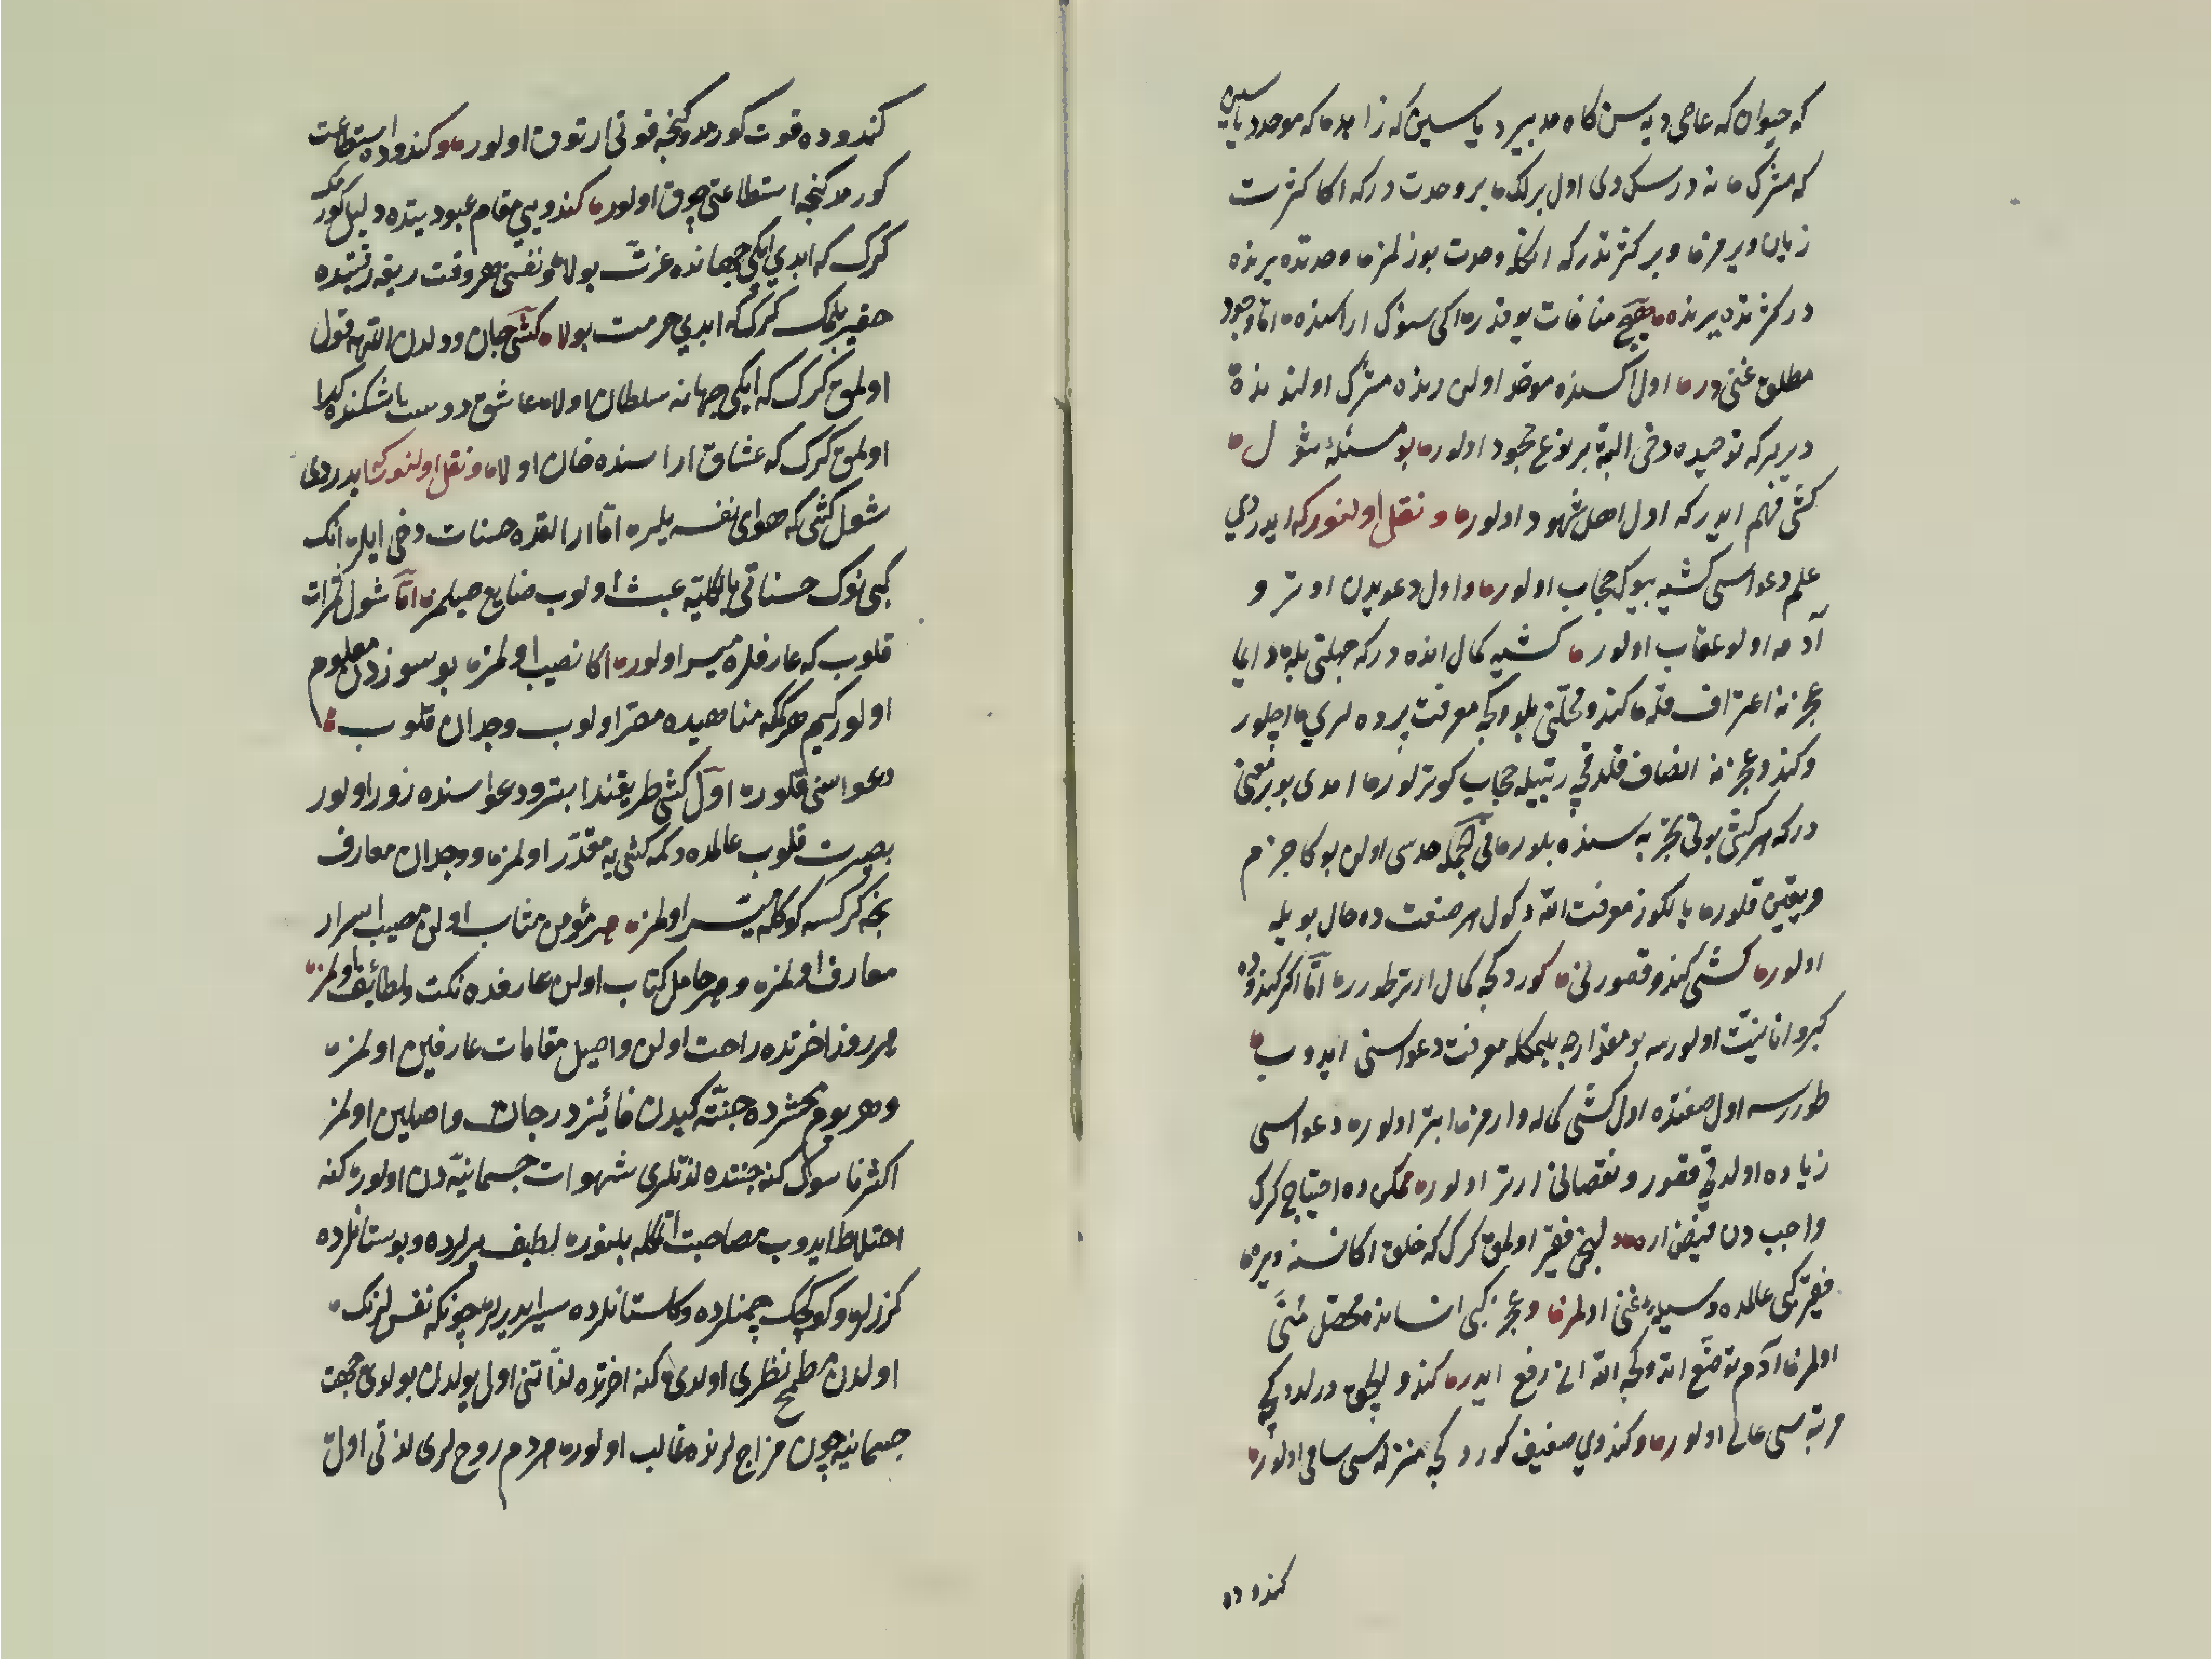 که حیوان که عاصی دیه سن کاه مدبیر دیاسین که زاهد که موحد دیاسین
که مشرک نه درسک دی اول برلک بر وحدت درکه اکا کثرت
زیان ویرمز و بر کثرتدرکه انکله وحدت بوزلمز وحدتده یرنده
در کثرتده یرنده هیچ منافات یوقدر ایکی سوزک اراسنده اما وجود
مطلق غنی در اول اراسنده موحد اولن رنده مشرک اولند
دیرلرکه توحیده دخی البته بر نوع جحود اولور بو مسئله
کشی فهم ایدرکه اول اهل شهود اولور و نقل اولنورکه ایدردی
علم دعواسی کشیه بیوک حجاب اولور و اول دعویدن اوترو
آدمه اولو عقاب اولور کشیه کمال انده درکه جهلنی بله دایما
عجزنه اعتراف قله کندو محلنی بلدوکجه معرفت پرده لری اچلور
و کندو عجزنه انصاف قلدقجه رتبیله حجاب کوترلور امدی بو بر معنی
درکه هر کشی بونی تجربه سنده بلور فی الجمله حدسی اولن بوکا جزم
و یقین قلور یالکوز معرفت الله دکول هر صنعت ده حال بویله
اولور کشی کندو قصورنی کوردکجه کمال ارتر طورر اما اکر کندوده
کبر و انانیت اولورسه بو مقدارجه بلمکله معرفت دعواسنی ایدوب
طوررسه اول صفتده اول کشی کماله وارمز ابتر اولور دعواسی
زیاده اولدقجه قصور و نقصانی ارتر اولور ممکن ده احتیاج کرک
واجب دن فیض ارمغیچون فقیر اولمق کرک که خلق اکا نسنه ویره
فقیر کبی عالمده وسیله غنی اولمز و عجز کبی انسانه محصل
اولمز آدم تواضع اتدوکجه الله انی رفع ایدر کندو الچق درلدوکجه
مرتبه سی عالی اولور و کندوی ضعیف کوردکجه منزله سی سامی اولور
کندوده
کندوده قوت کورمدوکنجه قوتی ارتوق اولور و کندوده استطاعت
کورمدکنجه استطاعتی چوق اولور کندویی مقام عبودیتده ذلیل کورمک
کرک که ابدی ایکی جهانده عزت بولا و نفسنی هر وقت ربقه رقیتده
حقیر بلمک کرک که ابدی حرمت بولا کشی جان و دلدن اللهه قول
اولمق کرک که ایکی جهانه سلطان اولا عاشق دوست اشکنده کدا
اولمق کرک که عشاق اراسنده خان اولا و نقل اولنورکه ایدردی
شول کشی که هوای نفسه یلره اما ارالقده حسنات دخی ایلر انک
کبی نوک حسناتی بالکلیه عبث اولوب ضایع صیلمز اما شول ثمرات
قلوب که عارفلره میسر اولور اکا نصیب اولمز بو سوزدن معلوم
اولور کیم هر کمکه مناهیده مصر اولوب وجدان قلوب
دعواسنی قلور اول کشی طریقندا ابتر و دعواسنده زور اولور
بصیرت قلوب عالمده دکمه کشی یه مقدر اولمز و وجدان معارف
نجه کرکسه کوکلمه میسر اولمز هر مؤمن مثاب اولن مصیب اسرار
معارف اولمز و هر حامل کتاب اولن عارفده نکت و لطائف اولمز
هر روز اخرتده راحت اولن واصل مقامات عارفین اولمز
و هر یوم محشرده جنته کیدن فائیز درجات واصلین اولمز
اکثر ناسوک کنه جنتده لذتلری شهوات جسمانیه دن اولور کنه
اختلاط ایدوب مصاحبت اتمکله بلنور لطیف یرلرده و بوستانلرده
کزرلر و کوکچک چمنلرده و کلستانلرده سیر ایدرلر چونکه نفسلرنک
اولدن مطمح نظری اولدی کنه اخرتده لذاتنی اول یولدن بولدی جهت
جسمانیه چون مزاج لرنده غالب اولور هر دم روح لری لذتی اول